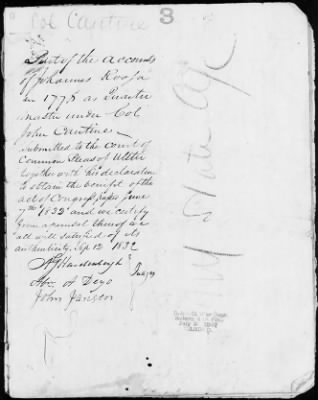 Col Cantine
8
Part of the accounts
of Johannes Roosa
in 1778 as Quarter
master under Col
John Cantine
submitted to the court of
Common Pleas of Ulster
together with his declaration
to obtain the benefit of the
act of Congress passed June
7th 1832 and we certify
from a perusal thereof we
are well satisfied of its
authenticity Sep 12 1832
Hardenbergh
Abm A Deyo
John Jansen
Judges
NY State